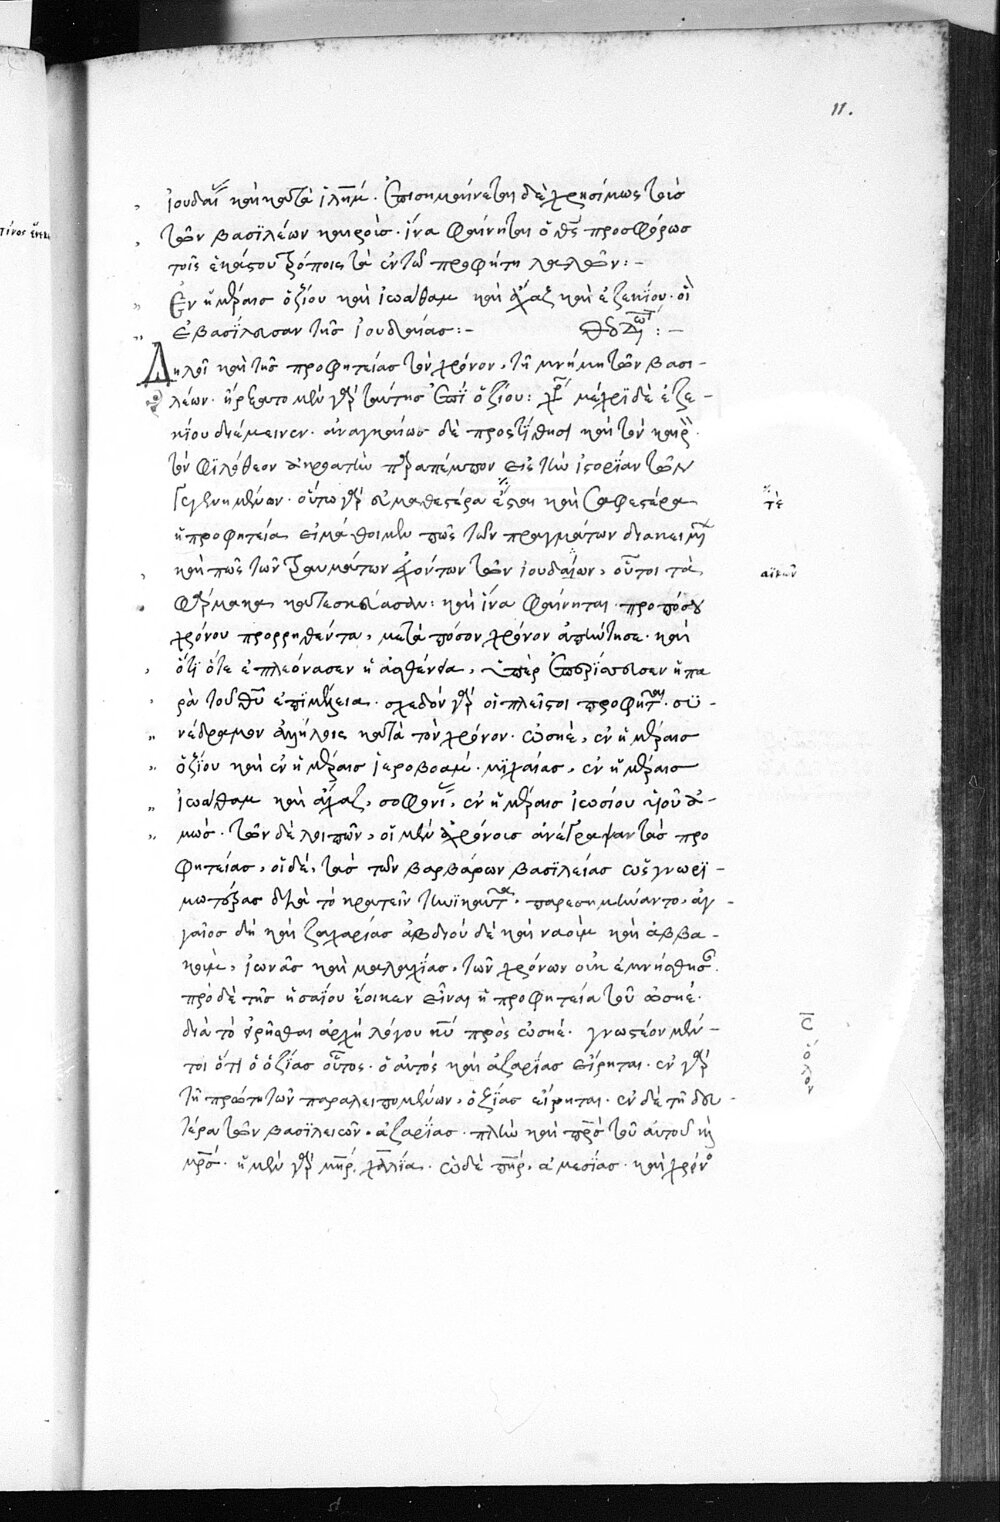 11.
ἰουδαί καὶ κατὰ ἰλημ. ἐπισημαίνεται δὲ χρησίμως τοὺς
τῶν βασιλέων καιροὺς. ἵνα φαίνηται ὁ θς προσφόρως
τοῖς ἑκάστου τρόποις τὰ ἐν τῶ προφήτη λαλῶν:-
Ἐν ἡμέραις ὀζίου καὶ ἰωάθαμ καὶ ἄχαζ καὶ ἐζεκίου. οἳ
ἐβασίλευσαν τῆς ἰουδαίας:-
Δηλοῖ καὶ τῆς προφητείας τὸν χρόνον, τῆ μνήμη τῶν βασι-
λέων. ἤρξατο μὲν γὰρ ταύτης ἐπὶ ὀζίου: μέχρι δὲ ἐζε-
κίου διέμεινεν. ἀναγκαίως δὲ προστίθησι καὶ τὸν καιρὸ
τὸν φιλόθεον ἀκροατὴν παραπέμπον εἰς τὴν ἱστορίαν τῶν
γεγενημένων. οὕτω γὰρ εὐμαθεστέρα ἔσται καὶ σαφεστέρα
ἡ προφητεία εἰ μάθοιμεν πῶς τῶν πραγμάτων διακειμ
καὶ πῶς τῶν τραυμάτων ἐχόντων τῶν ἰουδαίων, οὗτοι τὰ
φάρμακα κατεσκεύασαν: καὶ ἵνα φαίνηται προπόσου
χρόνου προρρηθέντα, μετὰ πόσον χρόνον ἀπήντησε. καὶ
ὅτι ὅτε ἐπλεόνασεν ἡ ἀσθένεια, ὑπὲρ ἐπερίσσευσεν ἡ πα
ρὰ τοῦ θυ ἐπιμέλεια. σχεδόν γὰρ οἱ πλεῖστοι προφῆτ. συ-
νέδραμον ἀλλήλοις κατὰ τὸν χρόνον. ὡσηὲ, ἐν ἡμέραις
ὀζίου καὶ ἐν ἡμέραις ἱεροβοάμ. μιχαίας, ἐν ἡμέραις
ἰωάθαμ καὶ ἄχαζ, σοφονί, ἐν ἡμέραις ἰωσίου υἱοῦ ἀ-
μώς. τῶν δὲ λοιπῶν, οἱ μὲν χρόνοις ἀνέγραψαν τὰς προ
φητείας, οἱ δέ, τὰς τῶν βαρβάρων βασιλείας ὡς γνωρι-
μωτέρας διὰ τὸ κρατεῖν τηνικαῦτα. παρεσημήναντο, ἀγ-
γαῖος δὴ καὶ ζαχαρίας ἀβδιοὺ δὲ καὶ ναοὺμ καὶ ἀββα-
κοὺμ, ἰωνᾶς καὶ μαλαχίας, τῶν χρόνων οὐκ ἐμνήσθησ.
πρὸ δὲ τῆς ἡσαΐου ἔοικεν εἶναι ἡ προφητεία τοῦ ὡσηέ.
διὰ τὸ εἰρῆσθαι ἀρχὴ λόγου κυ πρὸς ὡσηέ. γνωστέον μέν-
τοι ὅτι ὁ ὀζίας οὗτος. ὁ αὐτός καὶ ἀζαρίας εἴρηται. ἐν γὰρ
τῆ πρώτη τῶν παραλειπομένων, ὀζίας εἴρηται. ἐν δὲ τῆ δευ-
τέρα τῶν βασιλειῶν. ἀζαρίας. πλὴν καὶ πρς τοῦ αὐτοῦ κ
μρς. ἡ μὲν γὰρ μηρ, χαλία. ὁ δὲ πηρ, ἀμεσίας. καὶ χρόν
τὲ
αἰκῶν